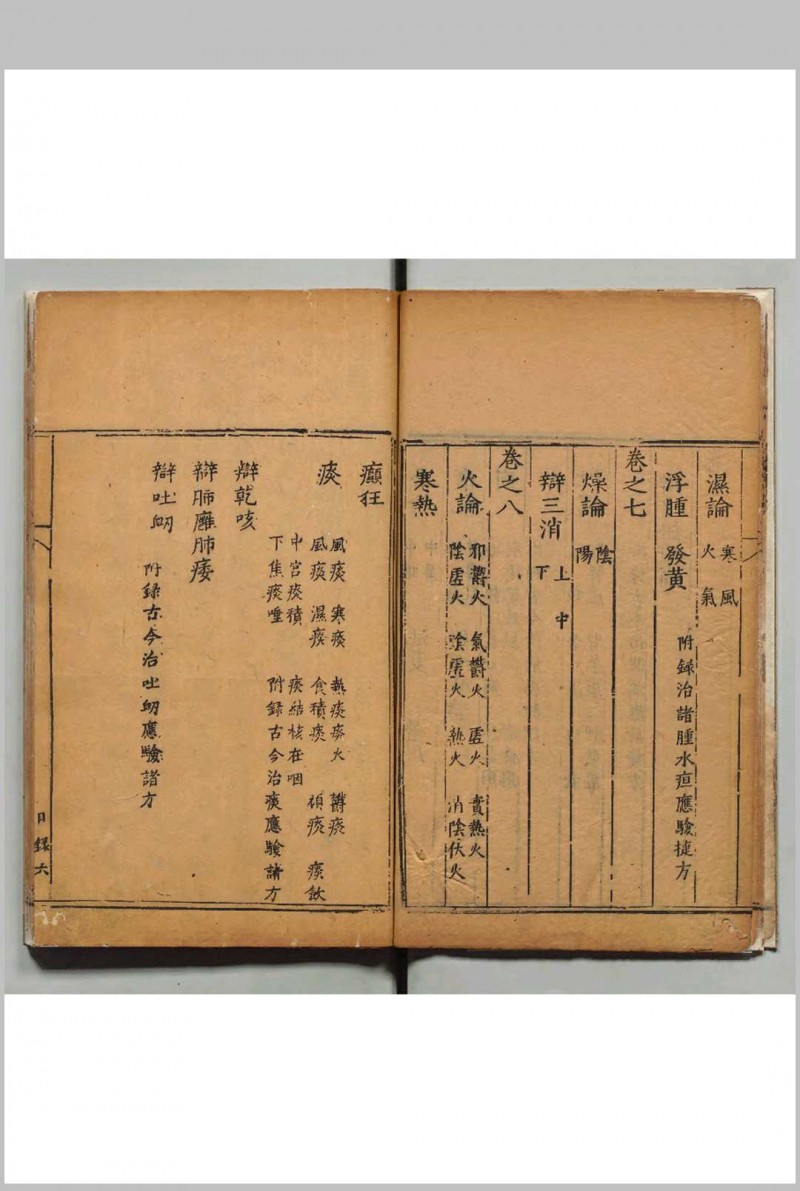 濕論 寒風火氣
浮腫 發黃 附録治諸腫水疸應驗捷方
卷之七
燥論 陰陽
辯三消 上中下
卷之八
火論 邪欝火 氣欝火 虛火 實熱火
陰虛火 陰虛火 熱火 消陰伏火
寒熱
癲狂
痰 風痰 寒痰 熱痰痰火 欝痰
風痰 濕痰 食積痰 頑痰 痰飲
中宮痰積 痰結核在咽
下焦痰唾 附録古今治痰應驗諸方
辯乾咳
辯肺癰肺痿
辯吐衂 附録古今治吐衂應驗諸方
目録六